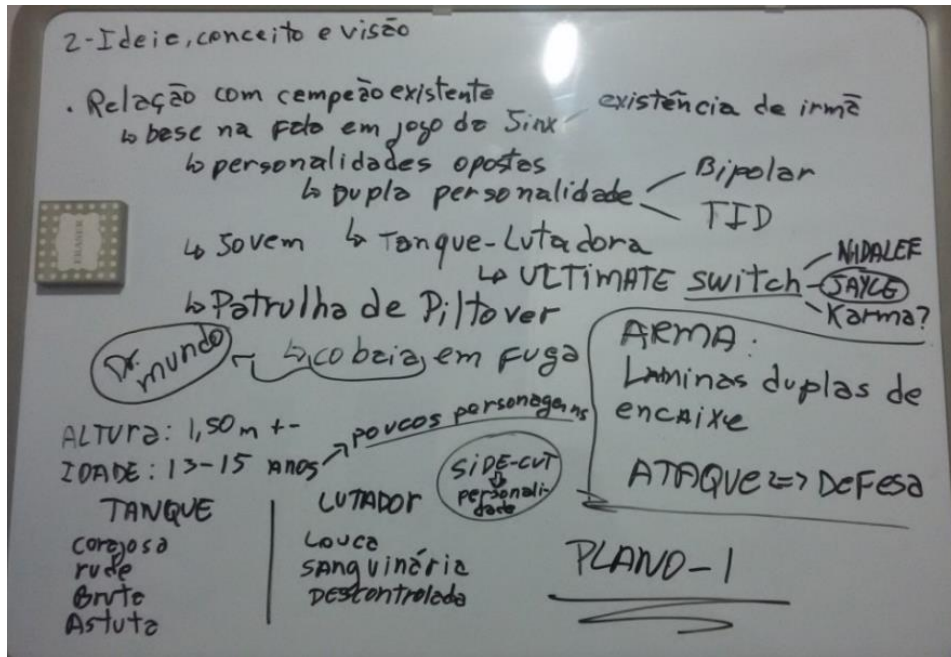 2-Ideia, conceito e visão
. Relação com campeão existente
existência de irmã
↳ base na fala em jogo da Jinx
↳ personalidades opostas
↳ Dupla personalidade
Bipolar
TID
↳ Jovem ↳ Tanque-Lutadora
↳ ULTIMATE switch
NIDALEE
JAYCE
Karma?
↳ Patrulha de Piltover
Dr. mundo
↳ cobaia em fuga
ARMA:
Laminas duplas de
encaixe
ATAQUE <=> DEFESA
ALTURA: 1,50m +-
IDADE: 13-15 ANOS
poucos personagens
SIDE-CUT
personali-
dade
TANQUE
corajosa
rude
Bruta
Astuta
LUTADOR
Louca
SANguinária
DEScontrolada
PLANO-1
ERASER